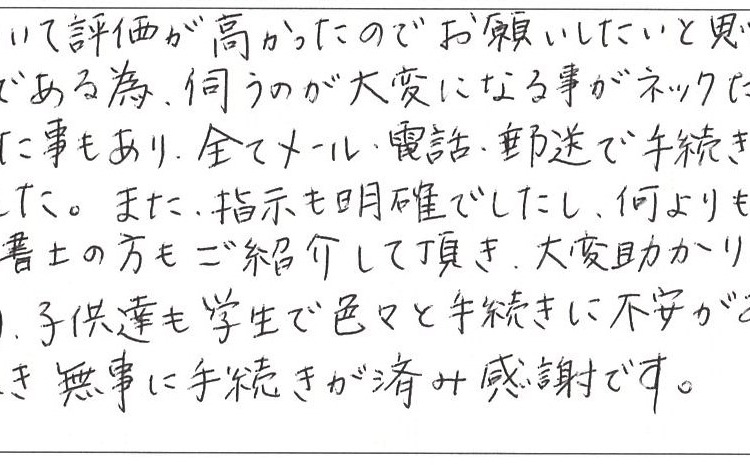 いて評価が高かったのでお願いしたいと思
である為、伺うのが大変になる事がネックだ
た事もあり、全てメール・電話・郵送で手続き
した。また、指示も明確でしたし、何よりも
書士の方もご紹介して頂き、大変助かり
、子供達も学生で色々と手続きに不安が
き無事に手続きが済み感謝です。